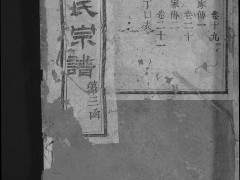 氏宗譜
第三函
卷十九
家傳一
卷二十
家傳二
卷二十一
丁口表